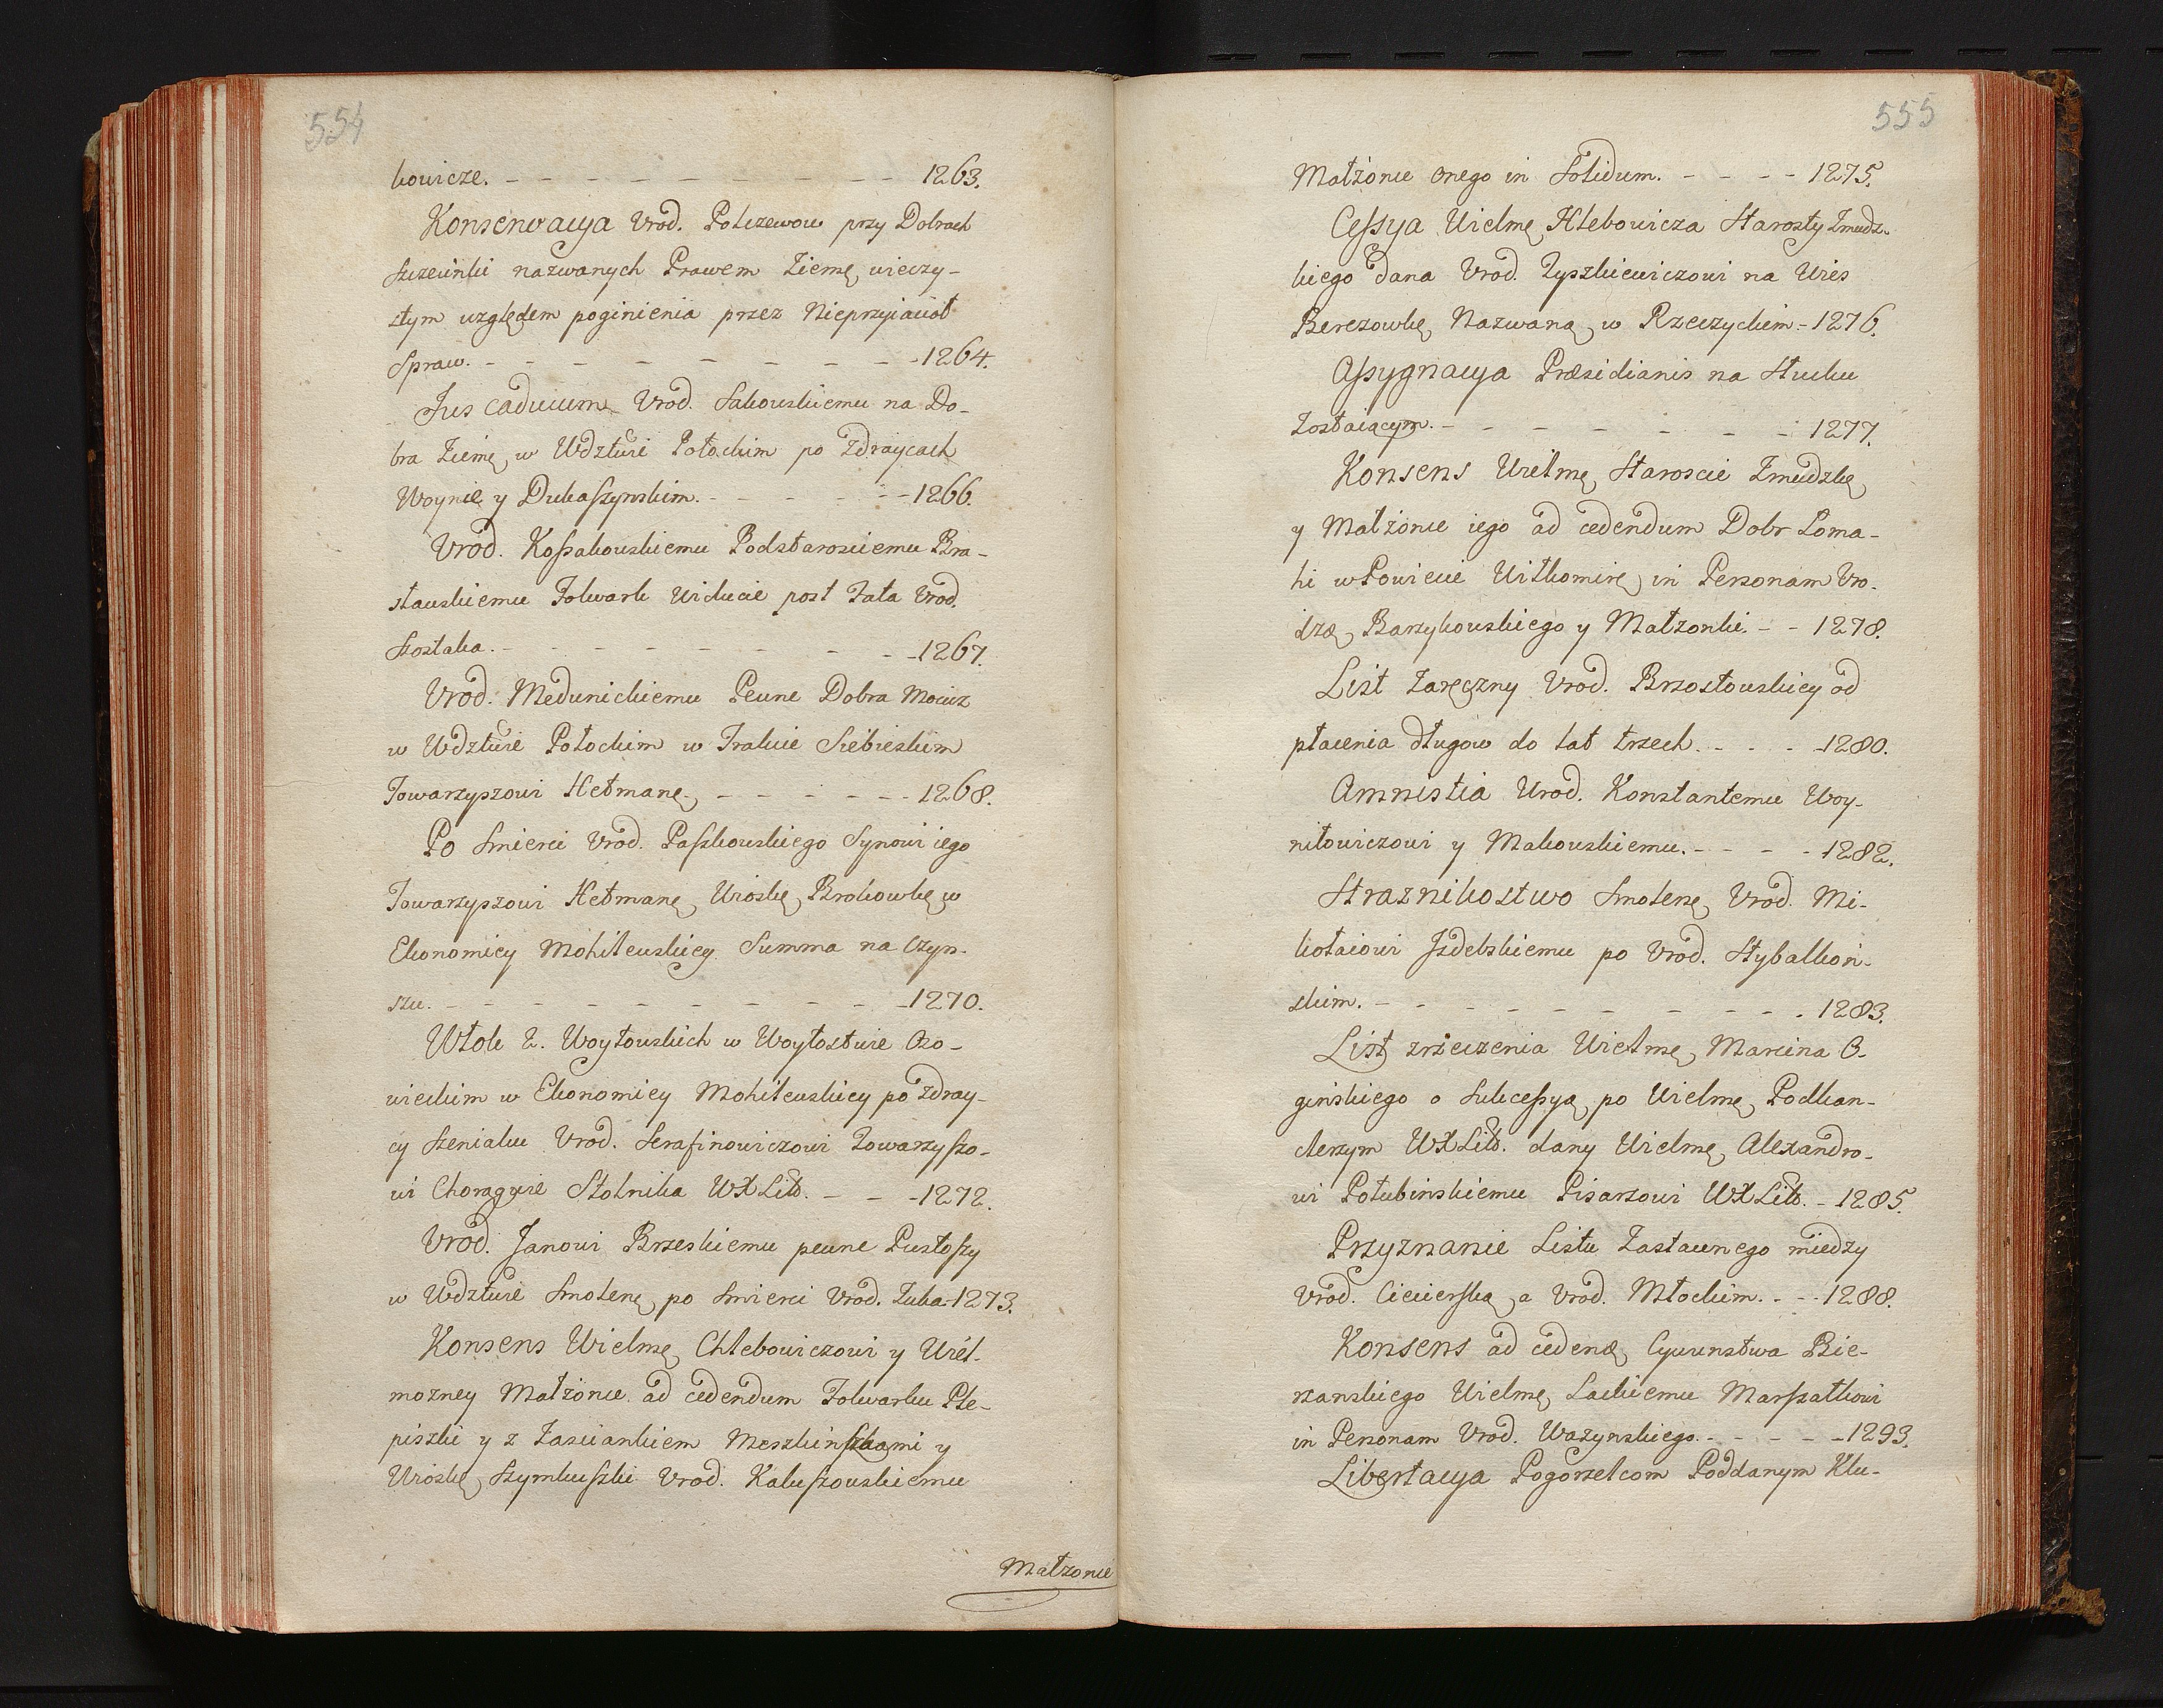 554
kowicze. - - - - - - - - - - 1263.
Konserwacya Vrod. Polczewow przy Dobrach
Szczeinki nazwanych Prawem Ziemę wieczy-
stym względem poginienia przez Nieprzyiaciół
Spraw. - - - - - - - - 1264.
Jus caducum Vrod. Sakowskiemu na Do-
bra Ziemę w Wdztwie Połockim po Zdraycach
Woynie y Dukaszynskim. - - - - - 1266.
Vrod. Kossakowskiemu Podstarosciemu Bra-
stawskiemu Folwark Widucie post Fata Vrod.
Szostaka. - - - - - - - - 1267.
Vrod. Medunickiemu Pewne Dobra Mocuz
w Wdztwie Połockim w Trakcie Siebieskim
Towarzyszowi Hetmanę - - - - - - 1268.
Po Smierci Vrod. Paszkowskiego Synowi iego
Towarzyszowi Hetmanę Wioskę Brokowkę w
Ekonomiey Mohilewskiey Summa na Czyn-
szu. - - - - - - - - - 1270.
Włok 2. Woytowskich w Woytostwie Ozo-
wieckim w Ekonomiey Mohilewskiey po Zdray-
cy Szeniaku Vrod. Serafinowiczowi Towarzyszo-
wi Choragwie Stolnika WXLitt. - - - 1272.
Vrod. Janowi Brzeskiemu pewne Pustoszy
w Wdztwie Smolenę po Smierci Vrod. Zuka. 1273.
Konsens Wielmę Chlebowiczowi y Wiel-
mozney Małżonce ad cedendum Folwarku Ple-
piszki y z Zasciankiem Meszkinszkami y
Wioskę Szymkuszki Vrod. Kaluszowskiemu
Małzonce
555
Małżonce onego in Solidum. - - - - 1275.
Cessya Wielmę Hlebowicza Starosty Zmudz-
kiego dana Vrod. Zyszkiewiczowi na Wies
Berezowkę Nazwaną w Rzeczyckim - 1276.
Assygnacya Præsidianis na Stucku
Zostaiącym. - - - - - - - 1277.
Konsens Wielmę Staroscie Zmudzkę
y Małżonce iego ad cedendum Dobr Poma-
ki w Powiecie Wiłkomirę in Personam Vro-
dzæ Barzykowskiego y Małzonki. - - 1278.
List Zaręczny Vrod. Brzostowskiey od
płacenia długow do lat trzech. - - - - 1280.
Amnistia Urod. Konstantemu Woy-
niłowiczowi y Makowskiemu. - - - - 1282.
Straznikostwo Smolenę Vrod. Mi-
kołaiowi Jzdebskiemu po Vrod. Stybalkoń-
skim. - - - - - - - - - 1283.
List zrzeczenia Wielmę Marcina O-
gińskiego o Sukcessyą po Wielmę Podkan-
clerzym WXLitt. dany Wielmę Alexandro-
wi Połubińskiemu Pisarzowi WXLitt. - 1285.
Przyznanie Listu Zastawnego miedzy
Vrod. Ciecierską a Vrod. Młockim. - - - 1288.
Konsens ad cedenæ Cywunstwa Bie-
rzanskiego Wielmę Lackiemu Marszałkowi
in Personam Vrod. Wazynskiego. - - - - - 1293.
Libertacya Pogorzelcom Poddanym Klu-